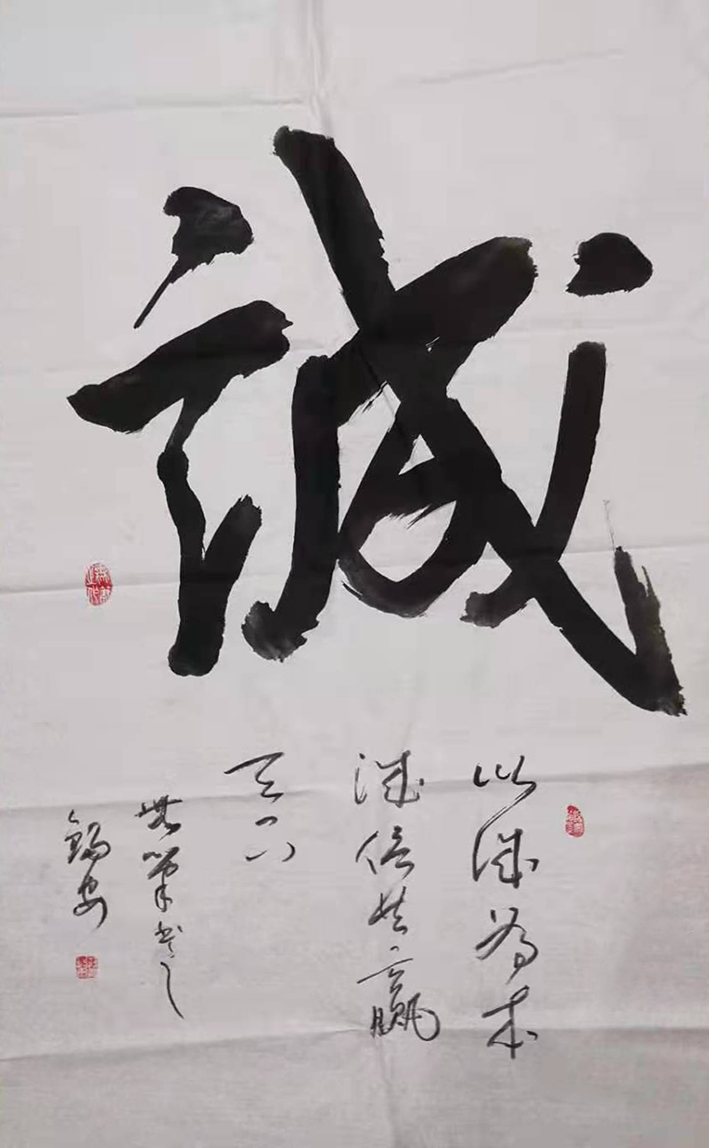 誠
以誠為本
誠信共贏
天下
筆書之
錫安